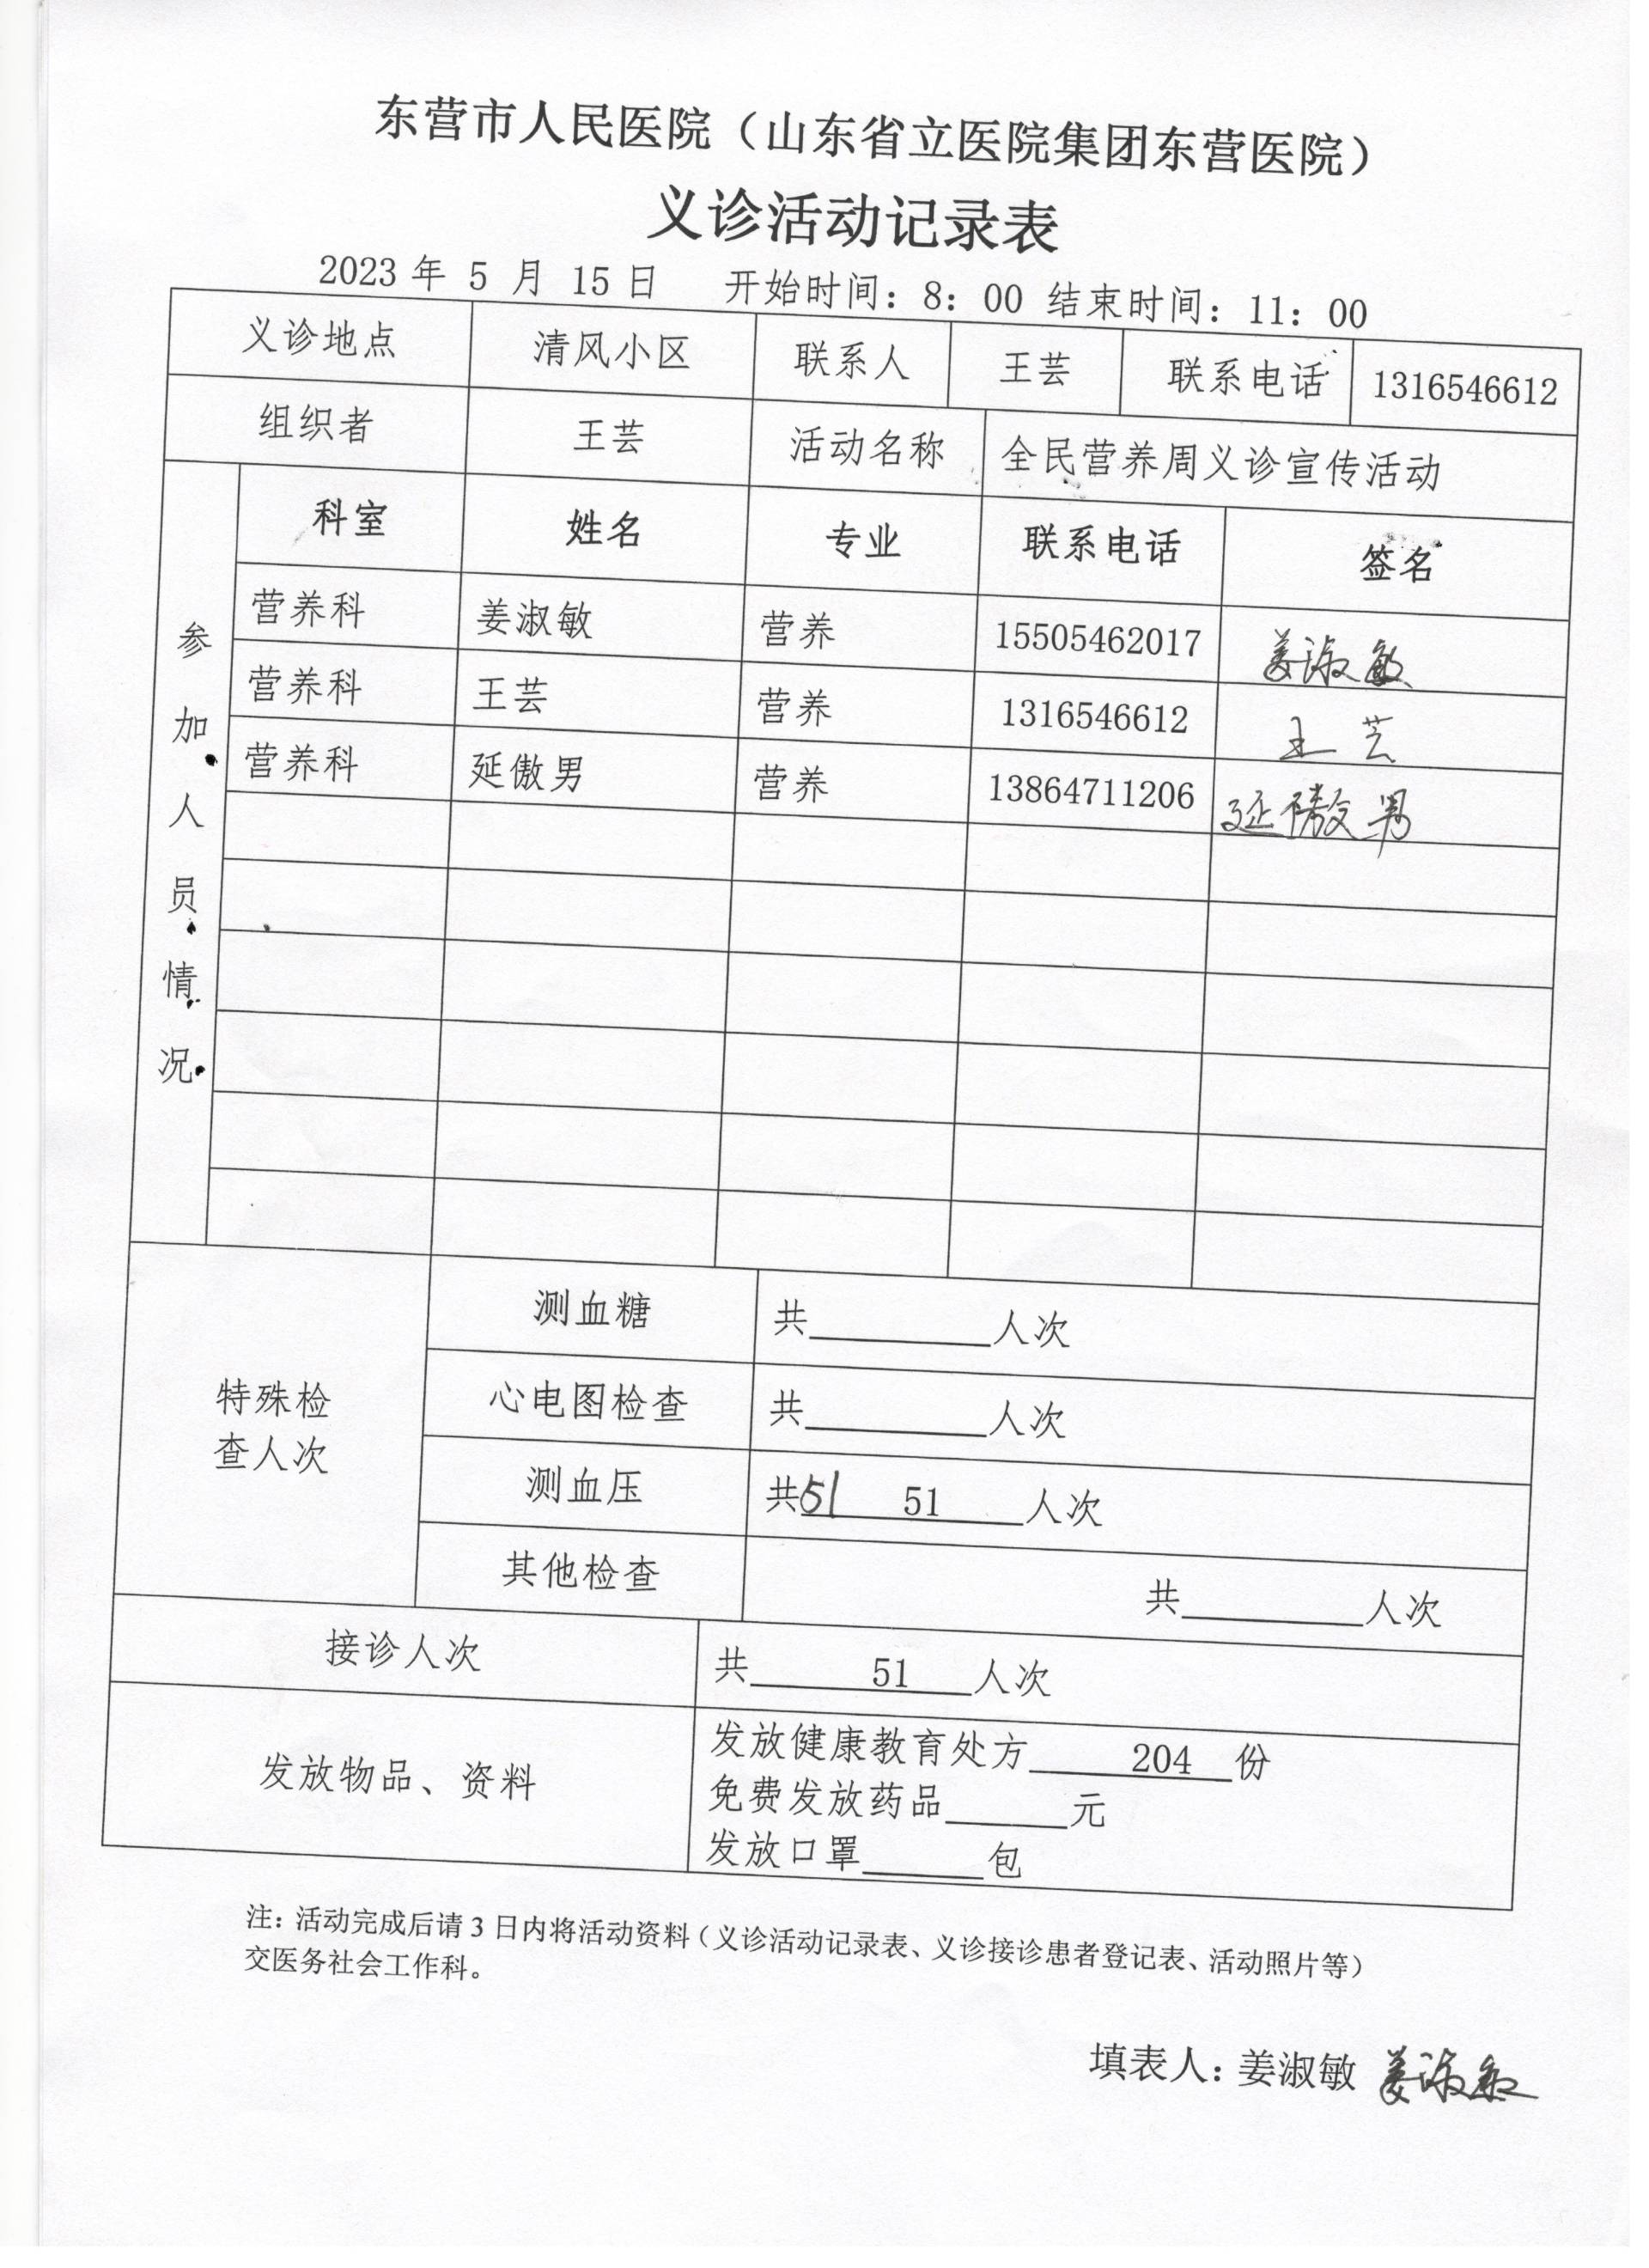 东营市人民医院（山东省立医院集团东营医院）
义诊活动记录表
2023 年 5 月 15 日 开始时间：8：00 结束时间：11：00
义诊地点 清风小区 联系人 王芸 联系电话 1316546612
组织者 王芸 活动名称 全民营养周义诊宣传活动
参加人员情况
科室 姓名 专业 联系电话 签名
营养科 姜淑敏 营养 15505462017 姜淑敏
营养科 王芸 营养 1316546612 王芸
营养科 延傲男 营养 13864711206 延傲男
特殊检
查人次
测血糖 共______人次
心电图检查 共______人次
测血压 共51 51 人次
其他检查 共______人次
接诊人次 共 51 人次
发放物品、资料
发放健康教育处方 204 份
免费发放药品______元
发放口罩______包
注：活动完成后请 3 日内将活动资料（义诊活动记录表、义诊接诊患者登记表、活动照片等）
交医务社会工作科。
填表人：姜淑敏 姜淑敏